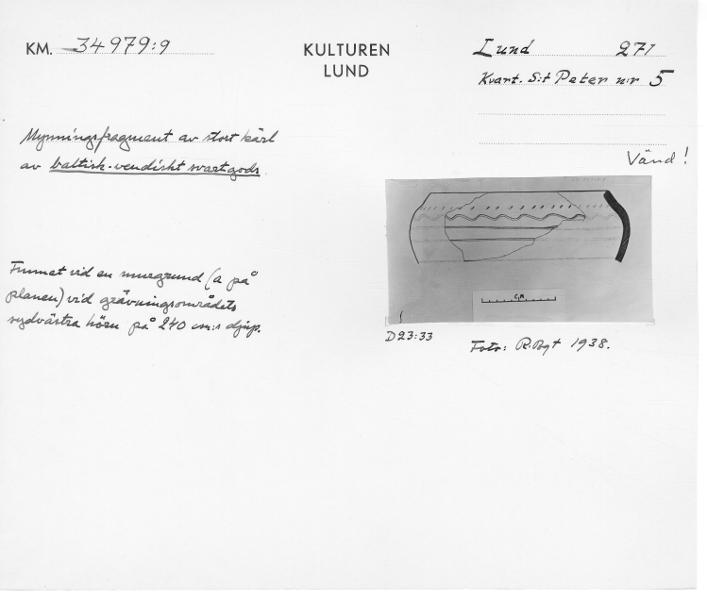 KM. 34979:9
KULTUREN
LUND
Lund 271
Kvart. S:t Peter n:r 5
Vänd!
Mynningsfragment av stort kärl
av baltisk-vendiskt svartgods.
Funnet vid en murgrund (a på
planen) vid grävningsområdets
sydvästra hörn på 240 cm:s djup.
CM
D23:33
Foto: R.Bgt 1938.